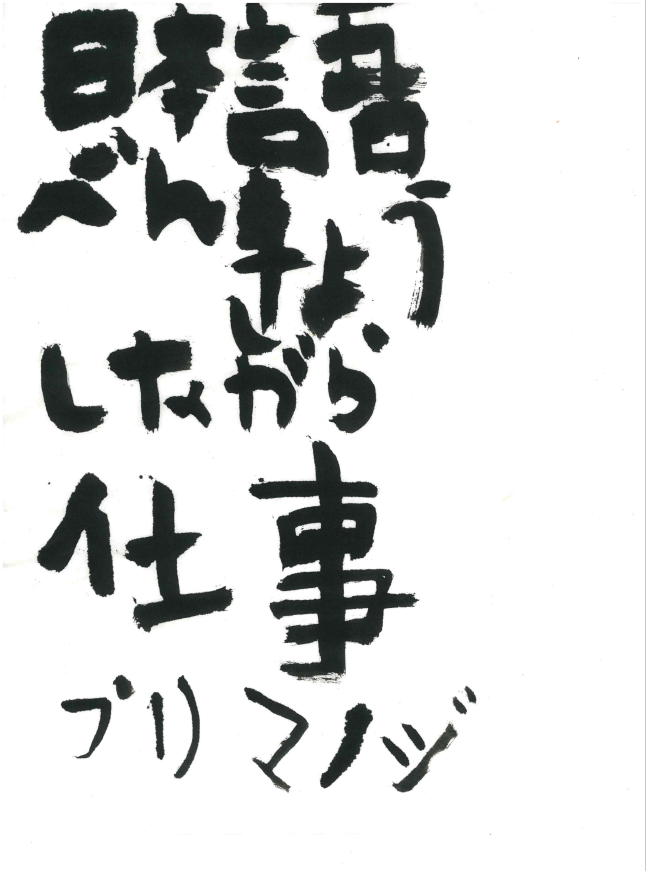 日本語
べんきょう
しながら
仕事
プリ マノジ